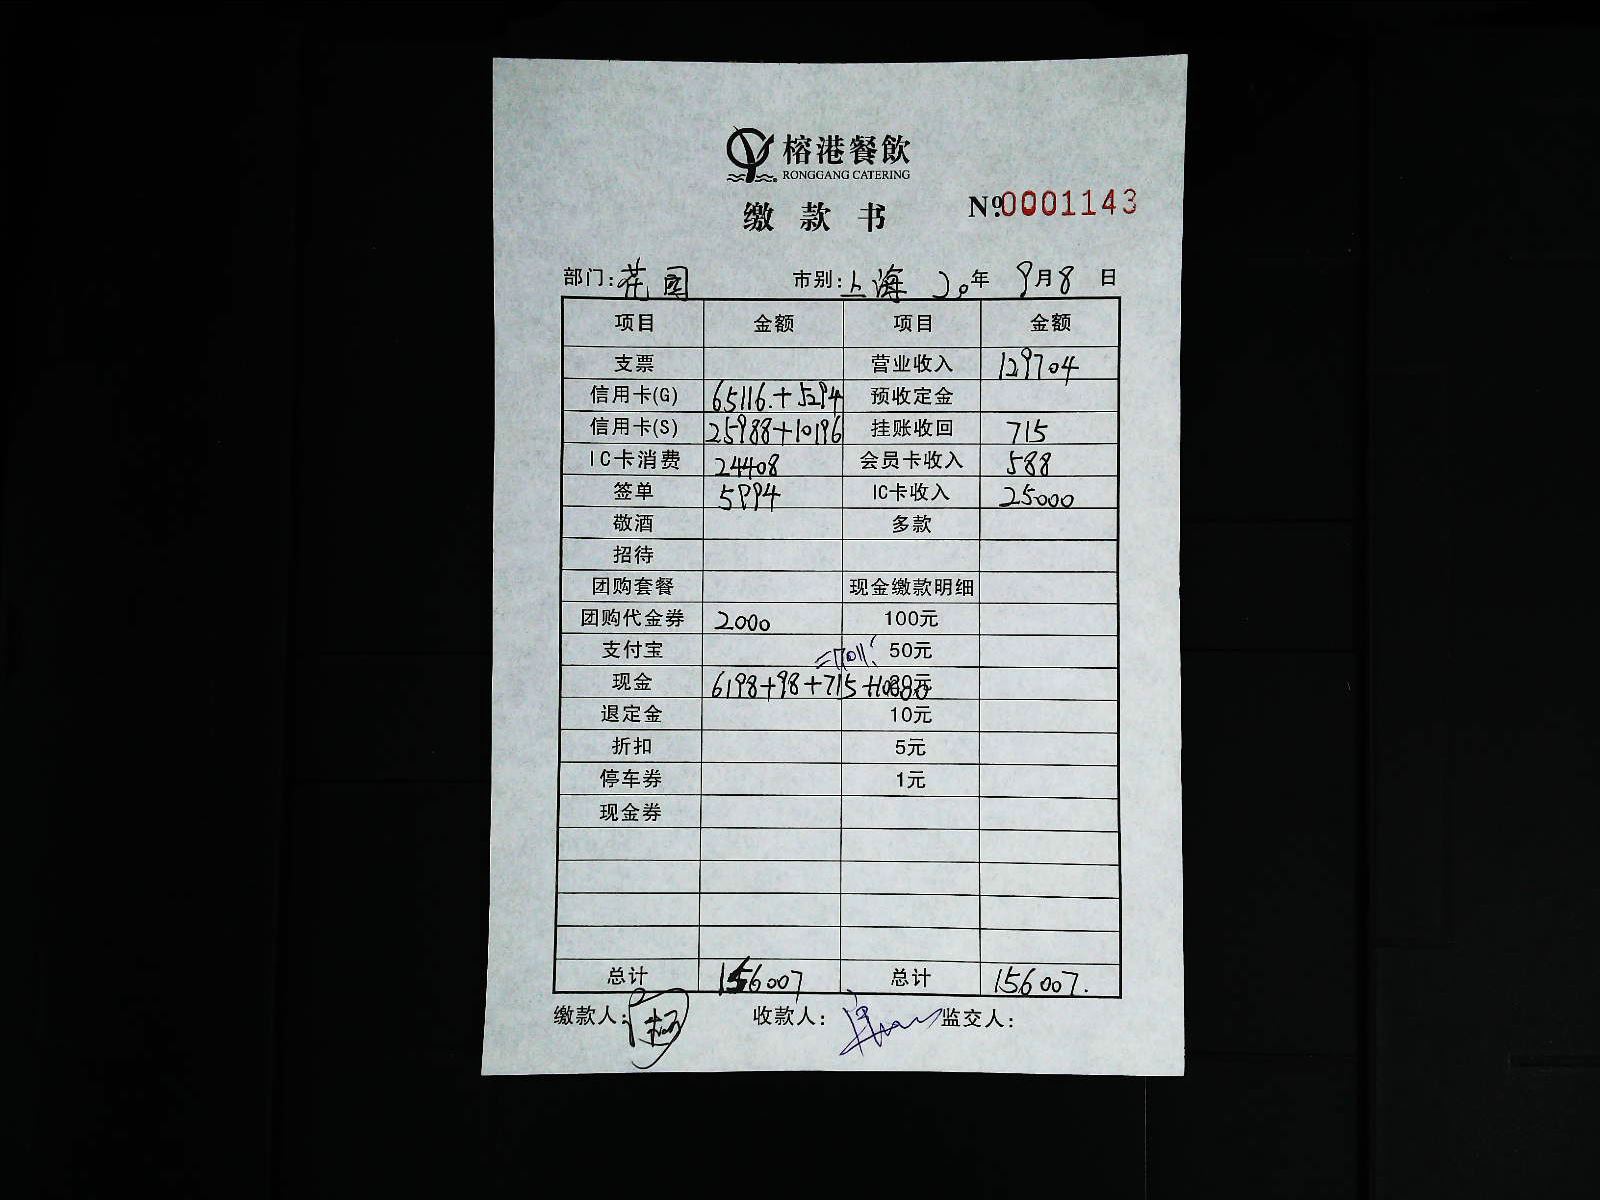 榕港餐飲
RONGGANG CATERING
缴款书 Nº.0001143
部门:花园 市别:上海 20年9月8日
项目 金额 项目 金额
支票 营业收入 129704
信用卡(G) 65116.+5294 预收定金
信用卡(S) 25988+10196 挂账收回 715
IC卡消费 24408 会员卡收入 588
签单 5994 IC卡收入 25000
敬酒 多款
招待
团购套餐 现金缴款明细
团购代金券 2000 100元
支付宝 =17011. 50元
现金 6198+98+715+10000 20元
退定金 10元
折扣 5元
停车券 1元
现金券
总计 156007 总计 156007.
缴款人: 收款人: 监交人: